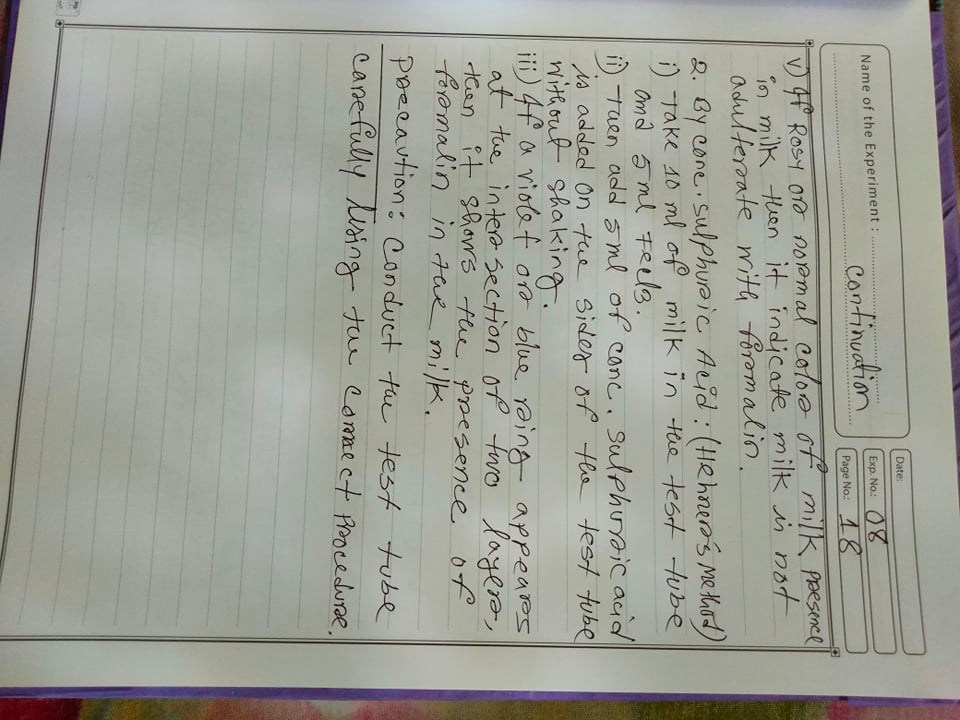 Name of the Experiment :
Continuation
Date:
Exp. No.: 08
Page No.: 18
v) If Rosy or normal color of milk presence
in milk then it indicate milk is not
adulterate with formalin.
2. By conc. sulphuric Acid : (Hehner's Method)
i) Take 10 ml of milk in the test tube
and 5 ml Fecl3.
ii) Then add 5 ml of conc. sulphuric acid
is added on the sides of the test tube
without shaking.
iii) If a violet or blue ring appears
at the inter section of two layers,
then it shows the presence of
formalin in the milk.
Precaution: Conduct the test tube
carefully Using the correct Procedure.